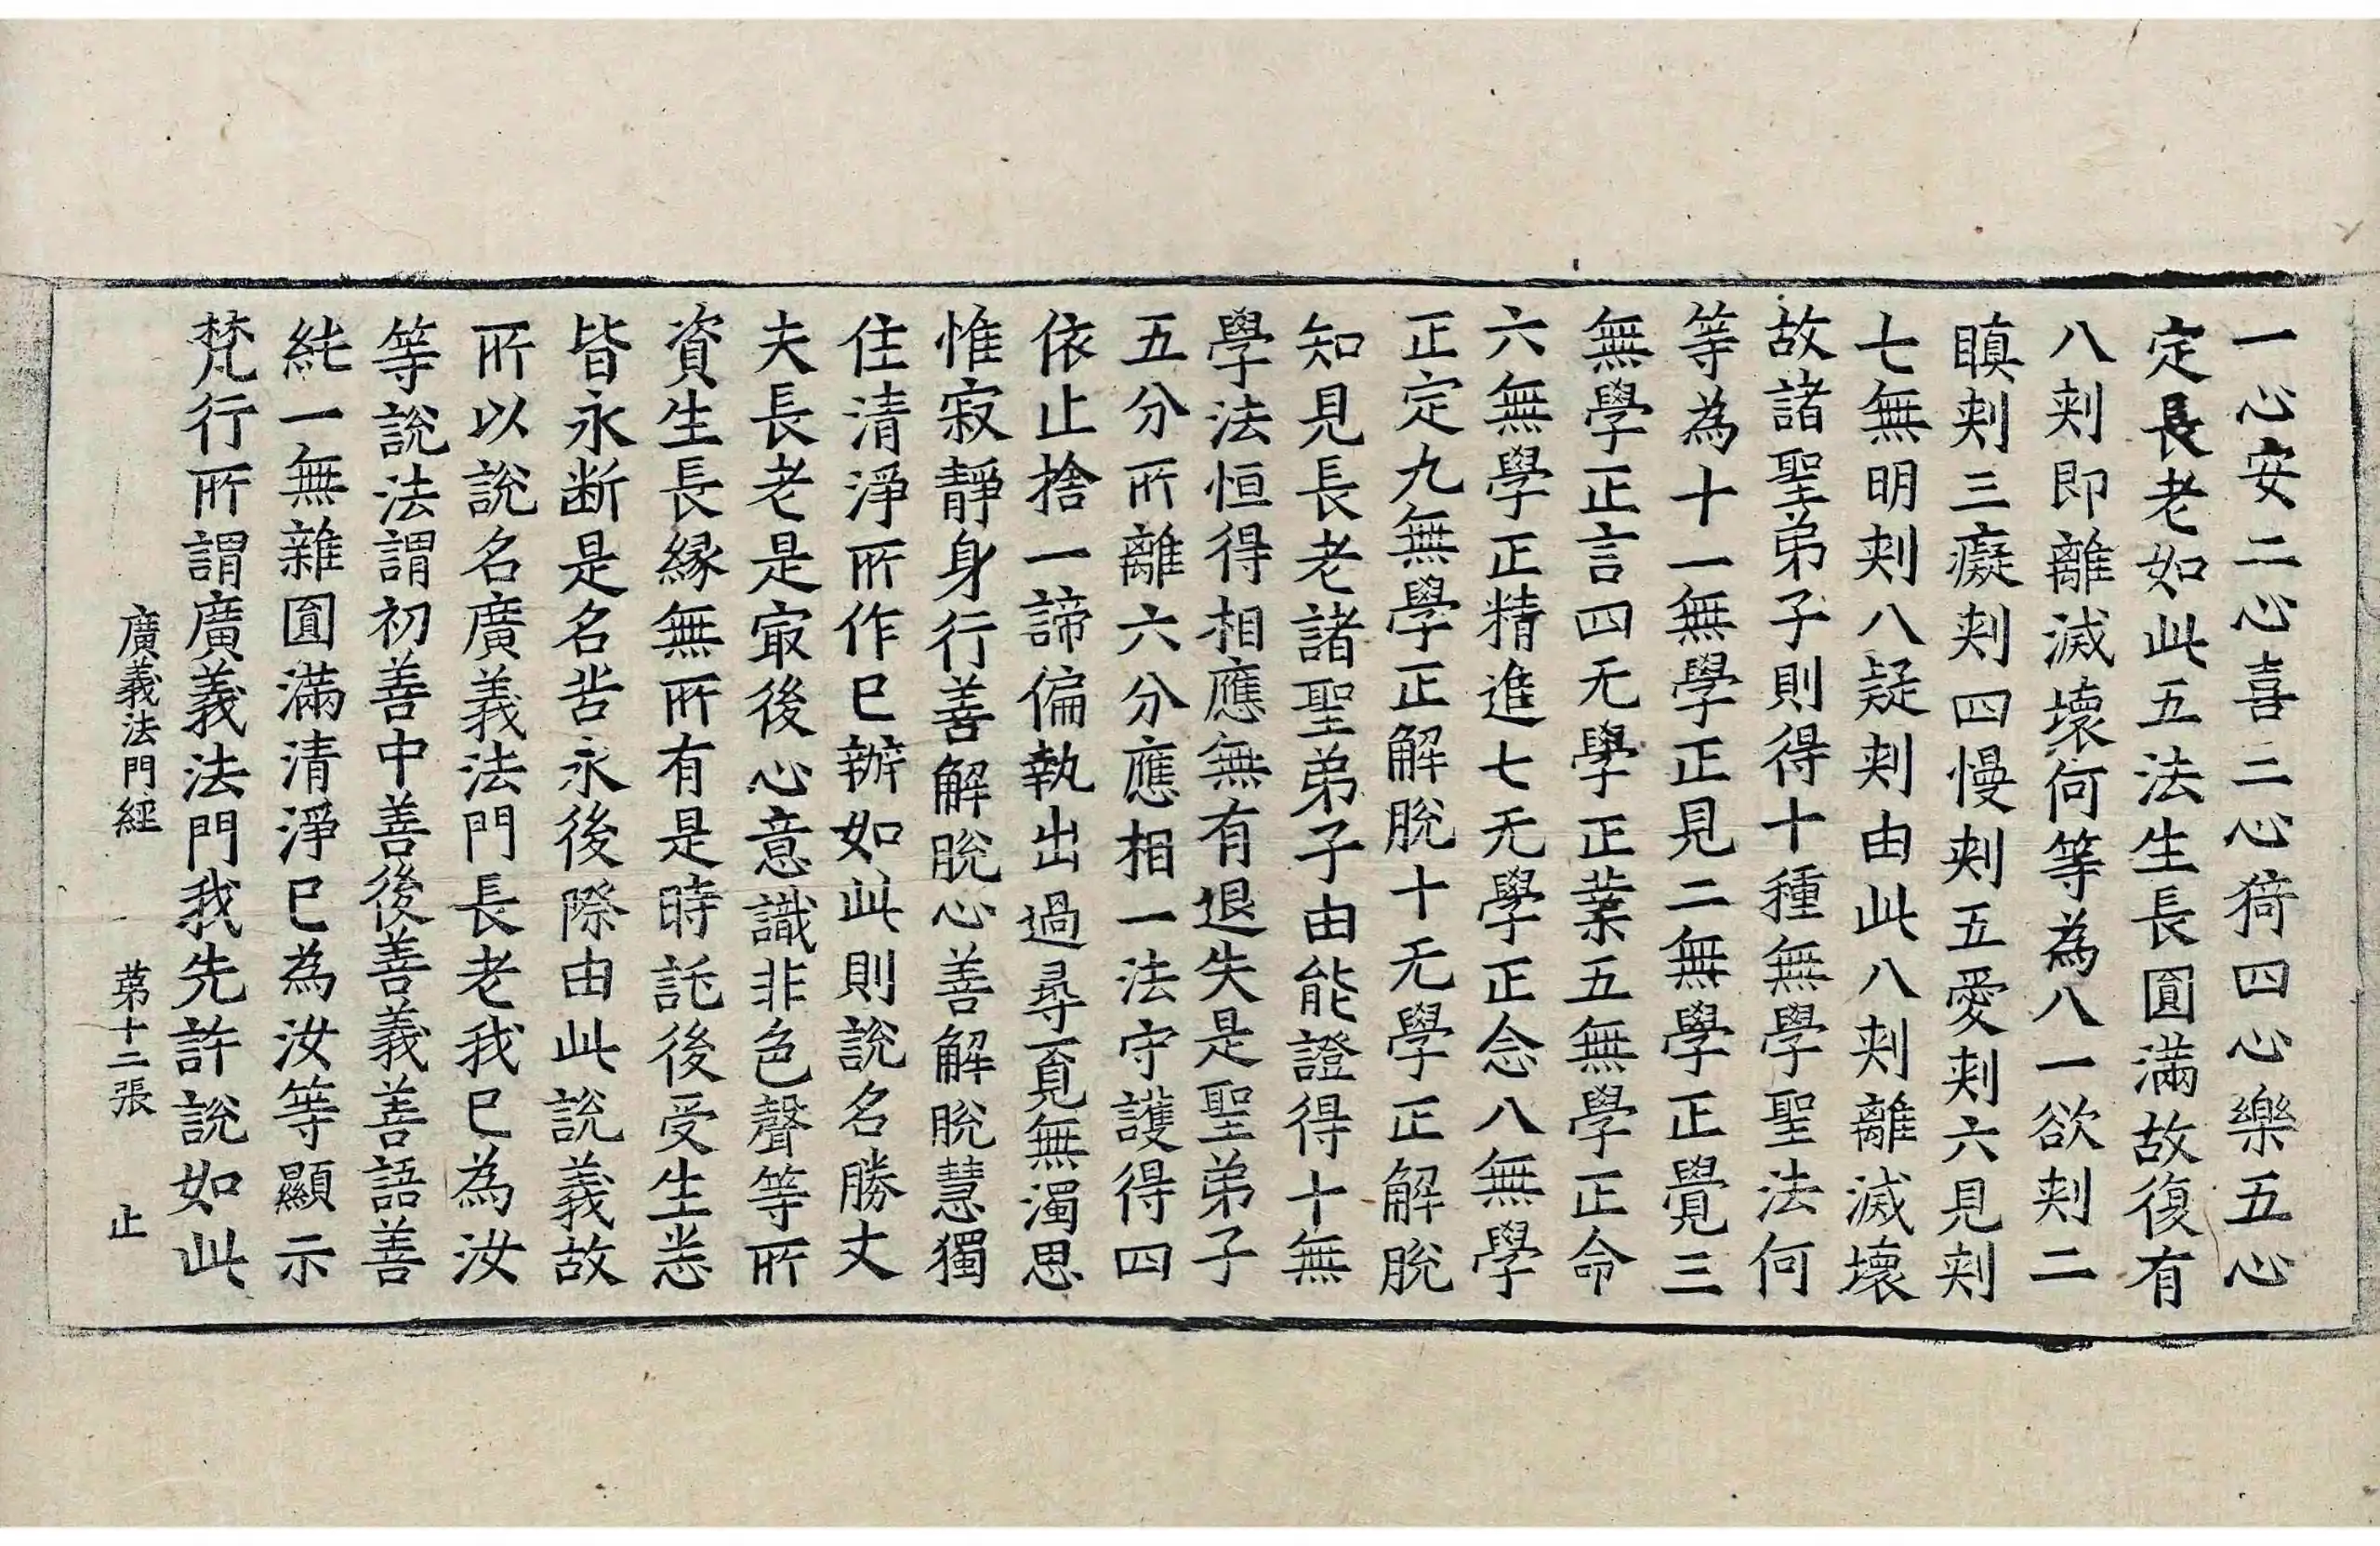 一心安二心喜三心猗四心樂五心
定長老如此五法生長圓滿故復有
八刾即離滅壞何等為八一欲刾二
瞋刾三癡刾四慢刾五愛刾六見刾
七無明刾八疑刾由此八刾離滅壞
故諸聖弟子則得十種無學聖法何
等為十一無學正見二無學正覺三
無學正言四无學正業五無學正命
六無學正精進七无學正念八無學
正定九無學正解脫十无學正解脫
知見長老諸聖弟子由能證得十無
學法恒得相應無有退失是聖弟子
五分所離六分應相一法守護得四
依止捨一諦偏執出過尋覓無濁思
惟寂靜身行善解脫心善解脫慧獨
住清淨所作已辦如此則說名勝丈
夫長老是寂後心意識非色聲等所
資生長緣無所有是時託後受生悉
皆永断是名苦永後際由此說義故
所以說名廣義法門長老我已為汝
等說法謂初善中善後善義善語善
純一無雜圓滿清淨已為汝等顯示
梵行所謂廣義法門我先許說如此
廣義法門經 苐十二張 止